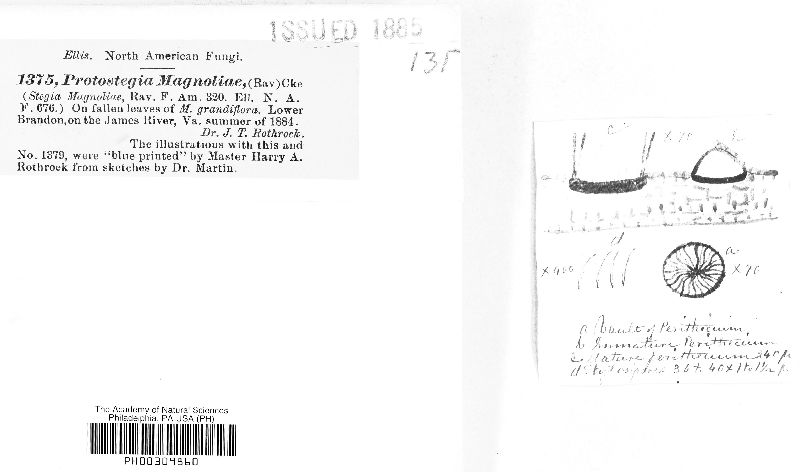 ISSUED 1885
135
Ellis. North American Fungi.
1375, Protostegia Magnoliae, (Rav) Cke
(Stegia Magnoliae, Rav. F. Am. 320. Ell. N. A.
F. 676.) On fallen leaves of M. grandiflora. Lower
Brandon, on the James River, Va. summer of 1884.
Dr. J. T. Rothrock.
The illustrations with this and
No. 1379, were "blue printed" by Master Harry A.
Rothrock from sketches by Dr. Martin.
c X 70 b
d
X 400 a X 70
a Vault of Perithecium,
b Immature Perithecium
c Mature perithecium
d Stylospores
The Academy of Natural Sciences
Philadelphia, PA USA (PH)
PH00304960